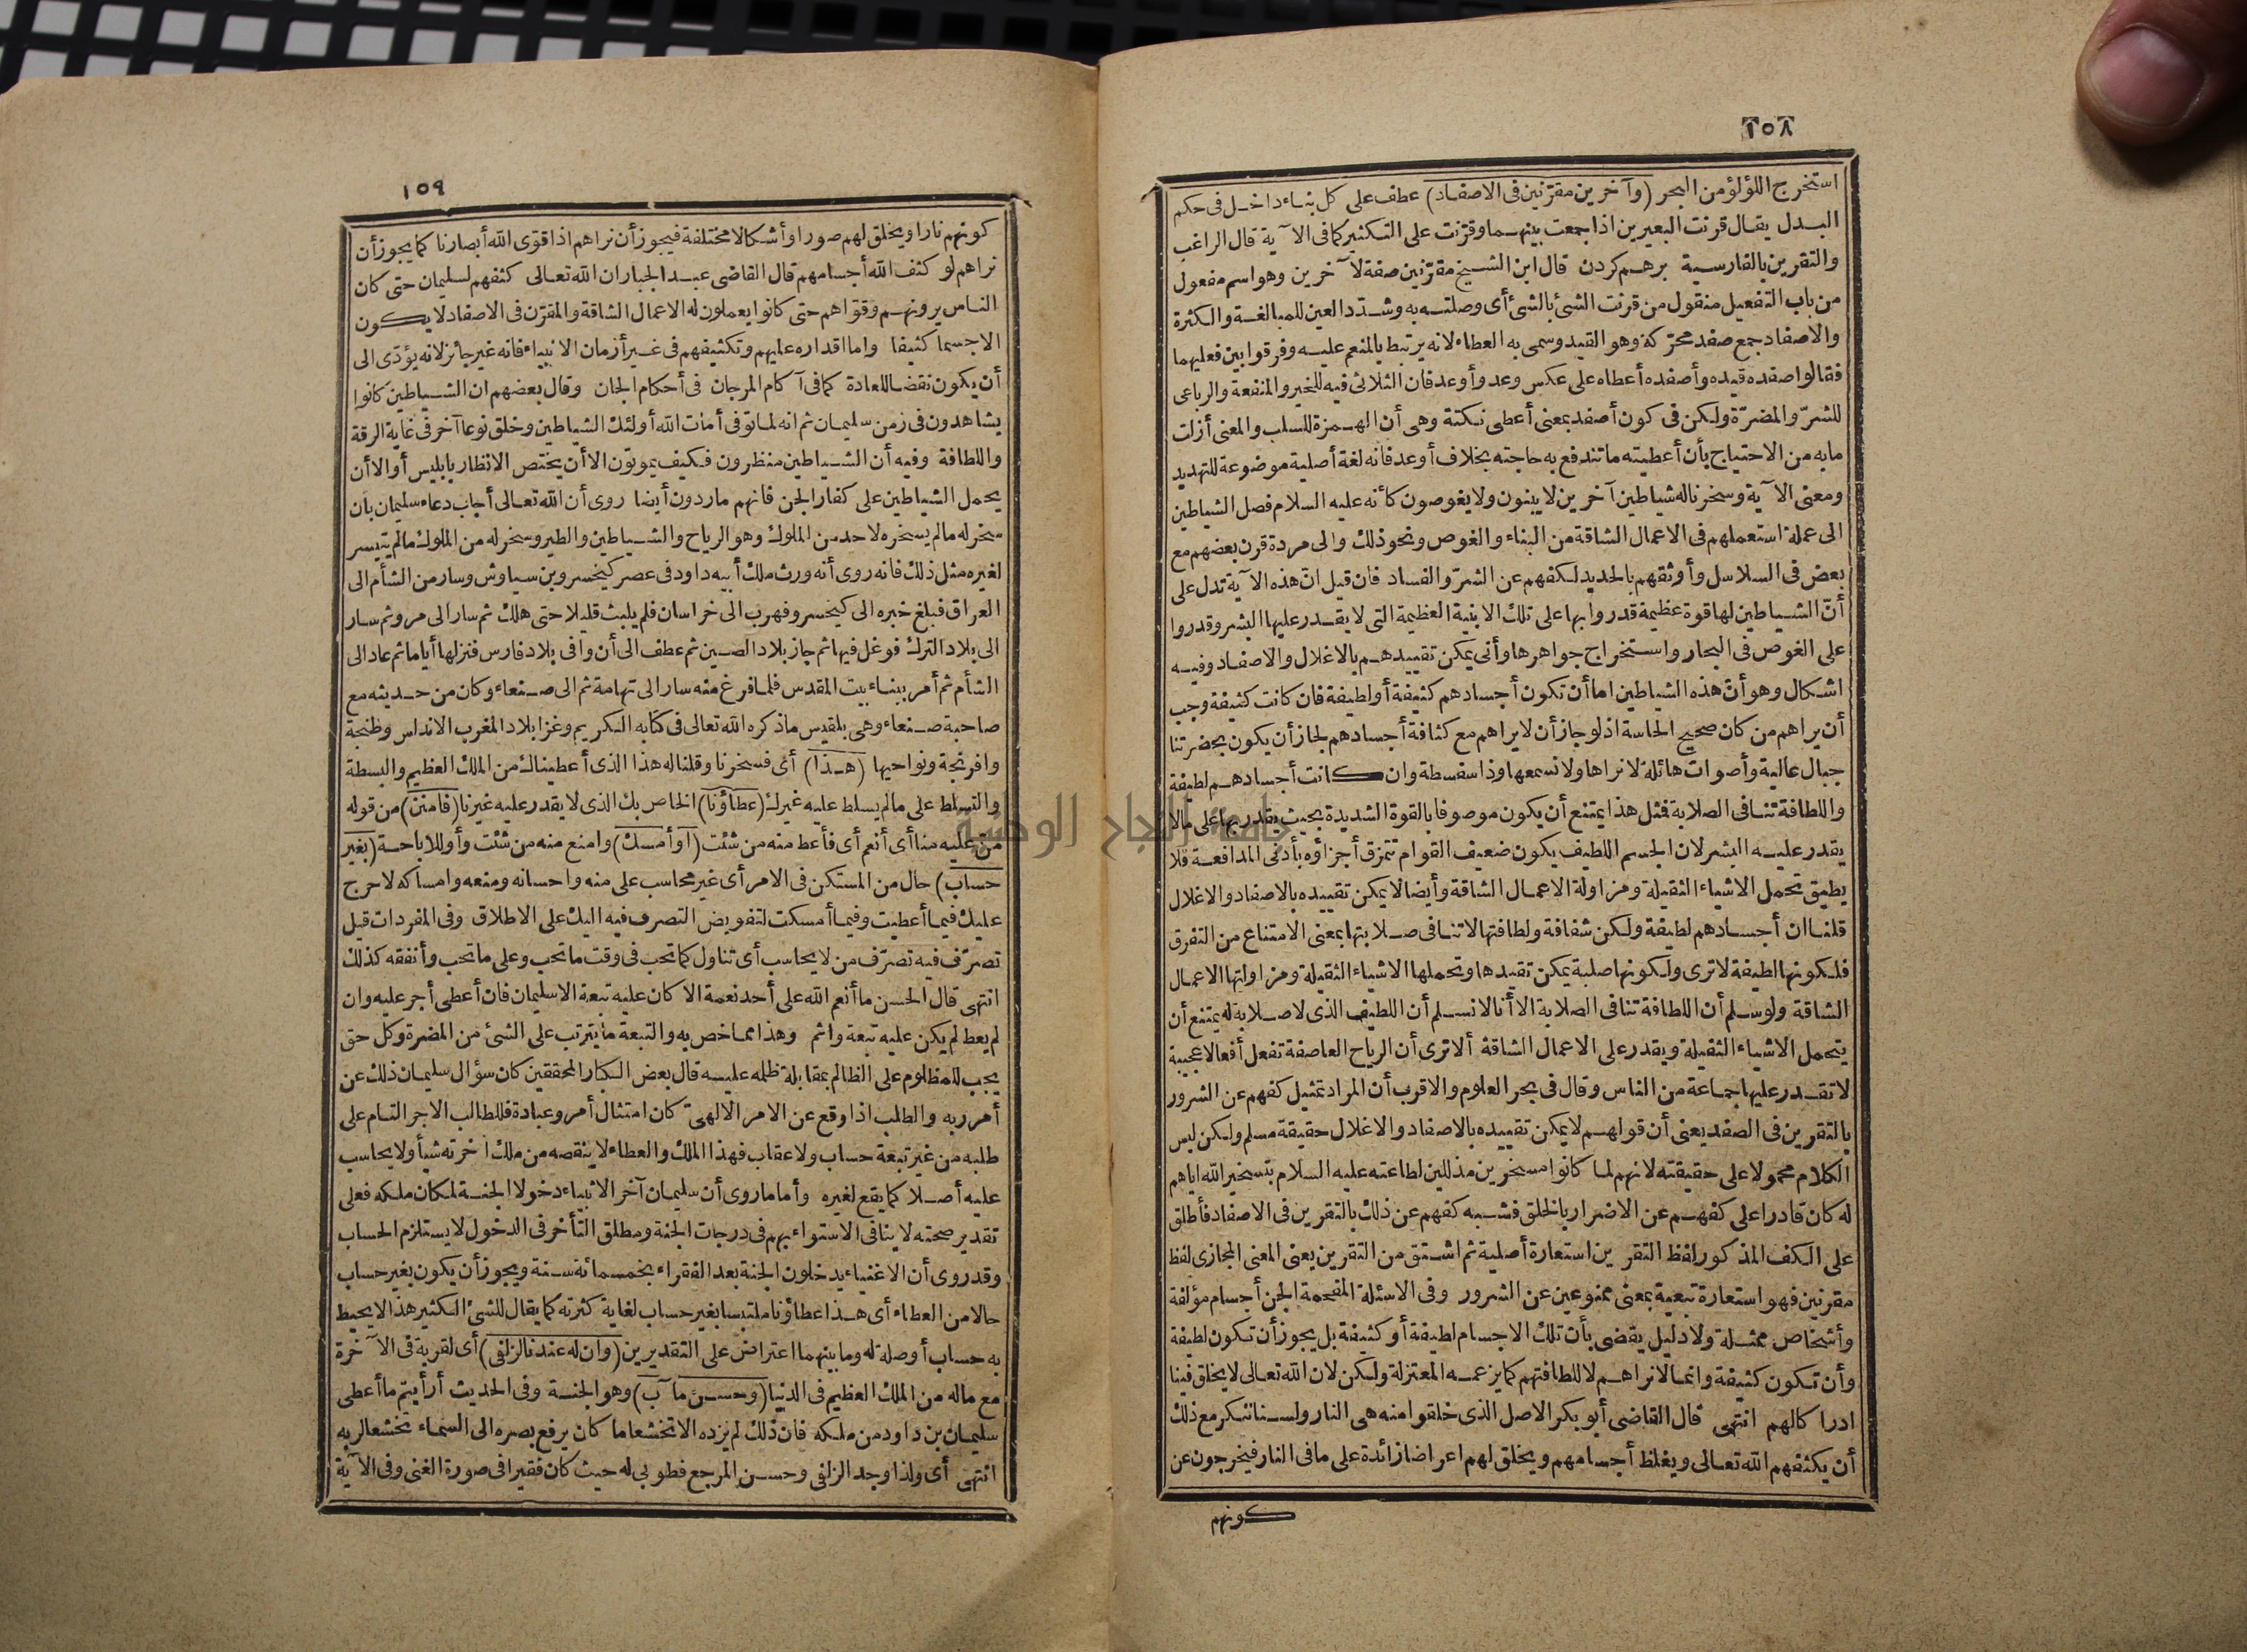 ٢٥٨
استخرج اللؤلؤ من البحر (وآخرين مقرّنين فى الاصفاد) عطف على كل بناء داخل فى حكم
البدل يقال قرنت البعيرين اذا جمعت بينهما وقرّنت على التكثير كما فى الآية قال الراغب
والتقرين بالفارسية برهم كردن قال ابن الشيخ مقرّنين صفة لآخرين وهو اسم مفعول
من باب التفعيل منقول من قرنت الشئ بالشئ أى وصلته به وشدّد العين للمبالغة والكثرة
والاصفاد جمع صفد محرّكة وهو القيد وسمى به العطاء لانه يرتبط بالمنعم عليه وفرقوا بين فعليهما
فقالوا صفده قيده وأصفده أعطاه على عكس وعد وأوعد فان الثلاثى فيه للخير والمنفعة والرباعى
للشرّ والمضرّة ولكن فى كون أصفد بمعنى أعطى نكتة وهى أن الهمزة للسلب والمعنى أزلت
مابه من الاحتياج بأن أعطيته ماتندفع به حاجته بخلاف أوعد فانه لغة أصلية موضوعة للتهديد
ومعنى الآية وسخرنا له شياطين آخرين لا يبنون ولا يغوصون كأنه عليه السلام فصل الشياطين
الى عملة استعملهم فى الاعمال الشاقة من البناء والغوص ونحو ذلك والى مردة قرن بعضهم مع
بعض فى السلاسل وأوثقهم بالحديد لكفهم عن الشرّ والفساد فان قيل انّ هذه الآية تدل على
أنّ الشياطين لها قوة عظيمة قدروا بها على تلك الابنية العظيمة التى لا يقدر عليها البشر وقدروا
على الغوص فى البحار واستخراج جواهرها وأنى يمكن تقييدهم بالاغلال والاصفاد وفيه
اشكال وهو أنّ هذه الشياطين اما أن تكون أجسادهم كثيفة أولطيفة فان كانت كثيفة وجب
أن يراهم من كان صحيح الحاسة اذ لو جاز أن لا يراهم مع كثافة أجسادهم لجاز أن يكون بحضرتنا
جبال عالية وأصوات هائلة لا نراها ولا نسمعها وذا سفسطة وان كانت أجسادهم لطيفة
واللطافة تنافى الصلابة فمثل هذا يمتنع أن يكون موصوفا بالقوة الشديدة بحيث يقدر بها على مالا
يقدر عليه البشر لان الجسم اللطيف يكون ضعيف القوام تتمزق أجزاؤه بأدنى المدافعة فلا
يطيق تحمل الاشياء الثقيلة ومزاولة الاعمال الشاقة وأيضا لا يمكن تقييده بالاصفاد والاغلال
قلنا ان أجسادهم لطيفة ولكن شفافة ولطافتها لا تنافى صلابتها بمعنى الامتناع من التفرق
فلكونها لطيفة لا ترى ولكونها صلبة يمكن تقيدها وتحملها الاشياء الثقيلة ومزاولتها الاعمال
الشاقة ولو سلم أن اللطافة تنافى الصلابة الا أنا لا نسلم أن اللطيف الذى لا صلابة له يمتنع أن
يتحمل الاشياء الثقيلة ويقدر على الاعمال الشاقة ألا ترى أن الرياح العاصفة تفعل أفعالا عجيبة
لا تقدر عليها جماعة من الناس وقال فى بحر العلوم والاقرب أن المراد تمثيل كفهم عن الشرور
بالتقرين فى الصفد يعنى أن قولهم لا يمكن تقييده بالاصفاد والاغلال حقيقة مسلم ولكن ليس
الكلام محمولا على حقيقته لانهم لما كانوا مسخرين مذللين لطاعته عليه السلام بتسخير الله اياهم
له كان قادرا على كفهم عن الاضرار بالخلق فشبه كفهم عن ذلك بالتقرين فى الاصفاد فأطلق
على الكف المذكور لفظ التقرين استعارة أصلية ثم اشتق من التقرين يعنى المعنى المجازى لفظ
مقرنين فهو استعارة تبعية بمعنى ممنوعين عن الشرور وفى الاسئلة المقحمة الجن أجسام مؤلفة
وأشخاص ممثلة ولا دليل يقضى بأن تلك الاجسام لطيفة أو كثيفة بل يجوز أن تكون لطيفة
وأن تكون كثيفة وانما لا نراهم لا للطافتهم كما يزعمه المعتزلة ولكن لان الله تعالى لا يخلق فينا
ادرا كالهم انتهى قال القاضى أبو بكر الاصل الذى خلقوا منه هى النار ولسنا ننكر مع ذلك
أن يكثفهم الله تعالى ويغلظ أجسامهم ويخلق لهم اعراضا زائدة على ما فى النار فيخرجون عن
كونهم
١٥٩
كونهم نارا ويخلق لهم صورا وأشكالا مختلفة فيجوز أن نراهم اذا قوّى الله أبصارنا كما يجوز أن
نراهم لو كثف الله أجسامهم قال القاضى عبد الجبار ان الله تعالى كثفهم لسليمان حتى كان
الناس يرونهم وقواهم حتى كانوا يعملون له الاعمال الشاقة والمقرّن فى الاصفاد لا يكون
الاجسما كثيفا واما اقداره عليهم وتكثيفهم فى غير أزمان الانبياء فانه غير جائز لانه يؤدّى الى
أن يكون نقضا للعادة كما فى آكام المرجان فى أحكام الجان وقال بعضهم ان الشياطين كانوا
يشاهدون فى زمن سليمان ثم انه لما توفى أمات الله أولئك الشياطين وخلق نوعا آخر فى غاية الرقة
واللطافة وفيه أن الشياطين منظرون فكيف يموتون الا أن يختص الانظار بابليس أوالا أن
يحمل الشياطين على كفار الجن فانهم ماردون أيضا روى أن الله تعالى أجاب دعاء سليمان بأن
سخر له مالم يسخره لاحد من الملوك وهو الرياح والشياطين والطير وسخر له من الملوك مالم يتيسر
لغيره مثل ذلك فانه روى أنه ورث ملك أبيه داود فى عصر كيخسرو بن سياوش وسار من الشأم الى
العراق فبلغ خبره الى كيخسرو فهرب الى خراسان فلم يلبث قليلا حتى هلك ثم سار الى مرو ثم سار
الى بلاد الترك فوغل فيها ثم جاز بلاد الصين ثم عطف الى أن وافى بلاد فارس فنزلها أياما ثم عاد الى
الشأم ثم أمر ببناء بيت المقدس فلما فرغ منه سار الى تهامة ثم الى صنعاء وكان من حديثه مع
صاحبة صنعاء وهى بلقيس ماذكره الله تعالى فى كتابه الكريم وغزا بلاد المغرب الاندلس وطنجة
وافرنجة ونواحيها (هذا) أى فسخرنا وقلنا له هذا الذى أعطيناك من الملك العظيم والبسطة
والتسلط على مالم يسلط عليه غيرك (عطاؤنا) الخاص بك الذى لا يقدر عليه غيرنا (فامنن) من قوله
منّ عليه منا أى أنعم أى فأعط منه من شئت (أو أمسك) وامنع منه من شئت وأو للاباحة (بغير
حساب) حال من المستكن فى الامر أى غير محاسب على منه واحسانه ومنعه وامساكه لاحرج
عليك فيما أعطيت وفيما أمسكت لتفويض التصرف فيه اليك على الاطلاق وفى المفردات قيل
تصرّف فيه تصرّف من لا يحاسب أى تناول كما تحب فى وقت ما تحب وعلى ما تحب وأنفقه كذلك
انتهى قال الحسن ما أنعم الله على أحد نعمة الا كان عليه تبعة الا سليمان فان أعطى أجر عليه وان
لم يعط لم يكن عليه تبعة واثم وهذا مما خص به والتبعة ما يترتب على الشئ من المضرة وكل حق
يجب للمظلوم على الظالم بمقابلة ظلمه عليه قال بعض الكبار المحققين كان سؤال سليمان ذلك عن
أمر ربه والطلب اذا وقع عن الامر الالهى كان امتثال أمر وعبادة فللطالب الاجر التام على
طلبه من غير تبعة حساب ولا عقاب فهذا الملك والعطاء لا ينقصه من ملك آخرته شيأ ولا يحاسب
عليه أصلا كما يقع لغيره وأما ما روى أن سليمان آخر الانبياء دخولا الجنة لمكان ملكه فعلى
تقدير صحته لا ينافى الاستواء بهم فى درجات الجنة ومطلق التأخر فى الدخول لا يستلزم الحساب
وقد روى أن الاغنياء يدخلون الجنة بعد الفقراء بخمسمائة سنة ويجوز أن يكون بغير حساب
حالا من العطاء أى هذا عطاؤنا ملتبسا بغير حساب لغاية كثرته كما يقال للشئ الكثير هذا لا يحيط
به حساب أوصلة له وما بينهما اعتراض على التقديرين (وان له عندنا لزلفى) أى لقربة فى الآخرة
مع ماله من الملك العظيم فى الدنيا (وحسن مآب) وهو الجنة وفى الحديث أرأيتم ما أعطى
سليمان بن داود من ملكه فان ذلك لم يزده الا تخشعا ما كان يرفع بصره الى السماء تخشعا لربه
انتهى أى ولذا وجد الزلفى وحسن المرجع فطوبى له حيث كان فقيرا فى صورة الغنى وفى الآية
جامعة النجاح الوطنية